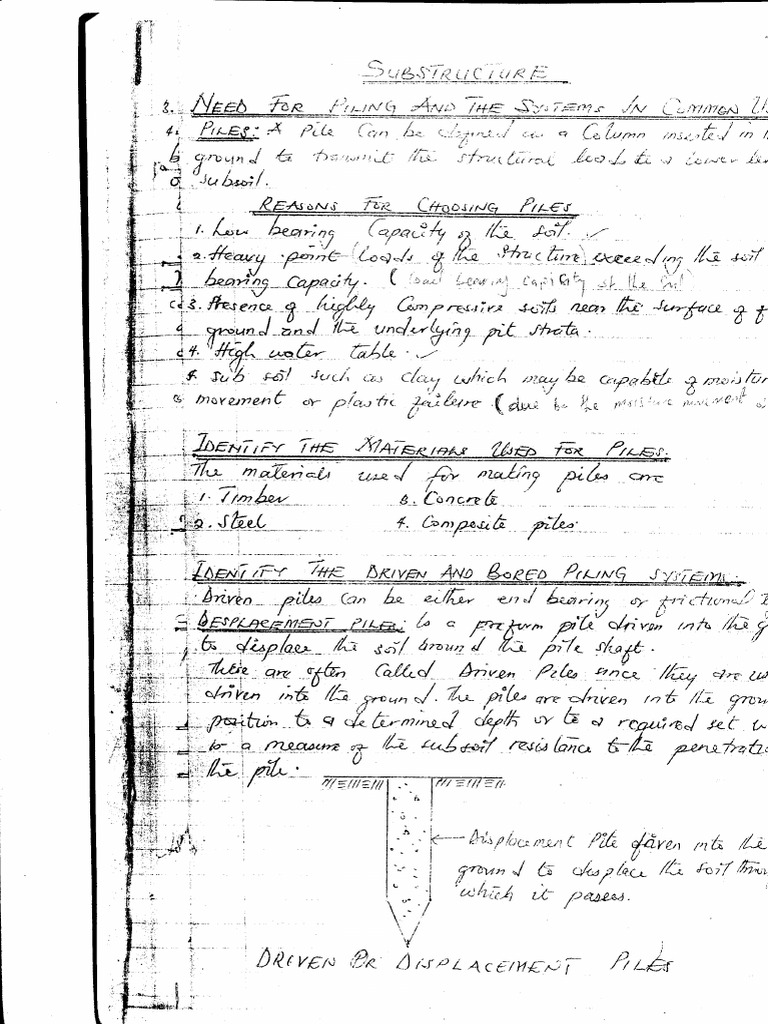 SUBSTRUCTURE
3. NEED FOR PILING AND THE SYSTEMS IN COMMON U
PILES: A Pile Can be defined as a Column inserted in
ground to transmit the structural loads to a lower
subsoil.
REASONS FOR CHOOSING PILES
1. Low bearing Capacity of the soil. ✓
2. Heavy point (loads of the structure) exceeding the soil
bearing capacity. (load bearing capicity of the soil)
3. Presence of highly Compressive soils near the surface of
ground and the underlying pit strata.
4. High water table. ✓
sub soil such as clay which may be capable of moistur
movement or plastic failure (due to the moisture movement
IDENTIFY THE MATERIALS USED FOR PILES.
The materials used for making piles are
1. Timber 3. Concrete
2. Steel 4. Composite piles
IDENTIFY THE DRIVEN AND BORED PILING SYSTEMS.
Driven piles can be either end bearing or frictional
DESPLACEMENT PILES: Is a preform pile driven into the g
to displace the soil around the pile shaft.
These are often Called Driven Piles since they are us
driven into the ground. The piles are driven into the grou
position to a determined depth or to a required set w
is a measure of the subsoil resistance to the penetratio
the pile.
Displacement Pile driven into the
ground to displace the soil throu
which it passes.
DRIVEN OR DISPLACEMENT PILES